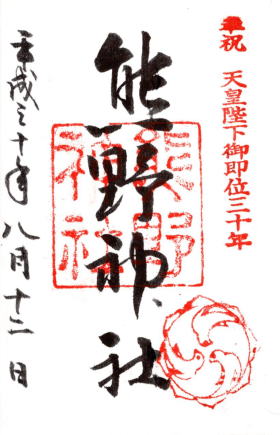 奉祝 天皇陛下御即位三十年
熊野神社
熊野
神社
平成三十年八月十二日